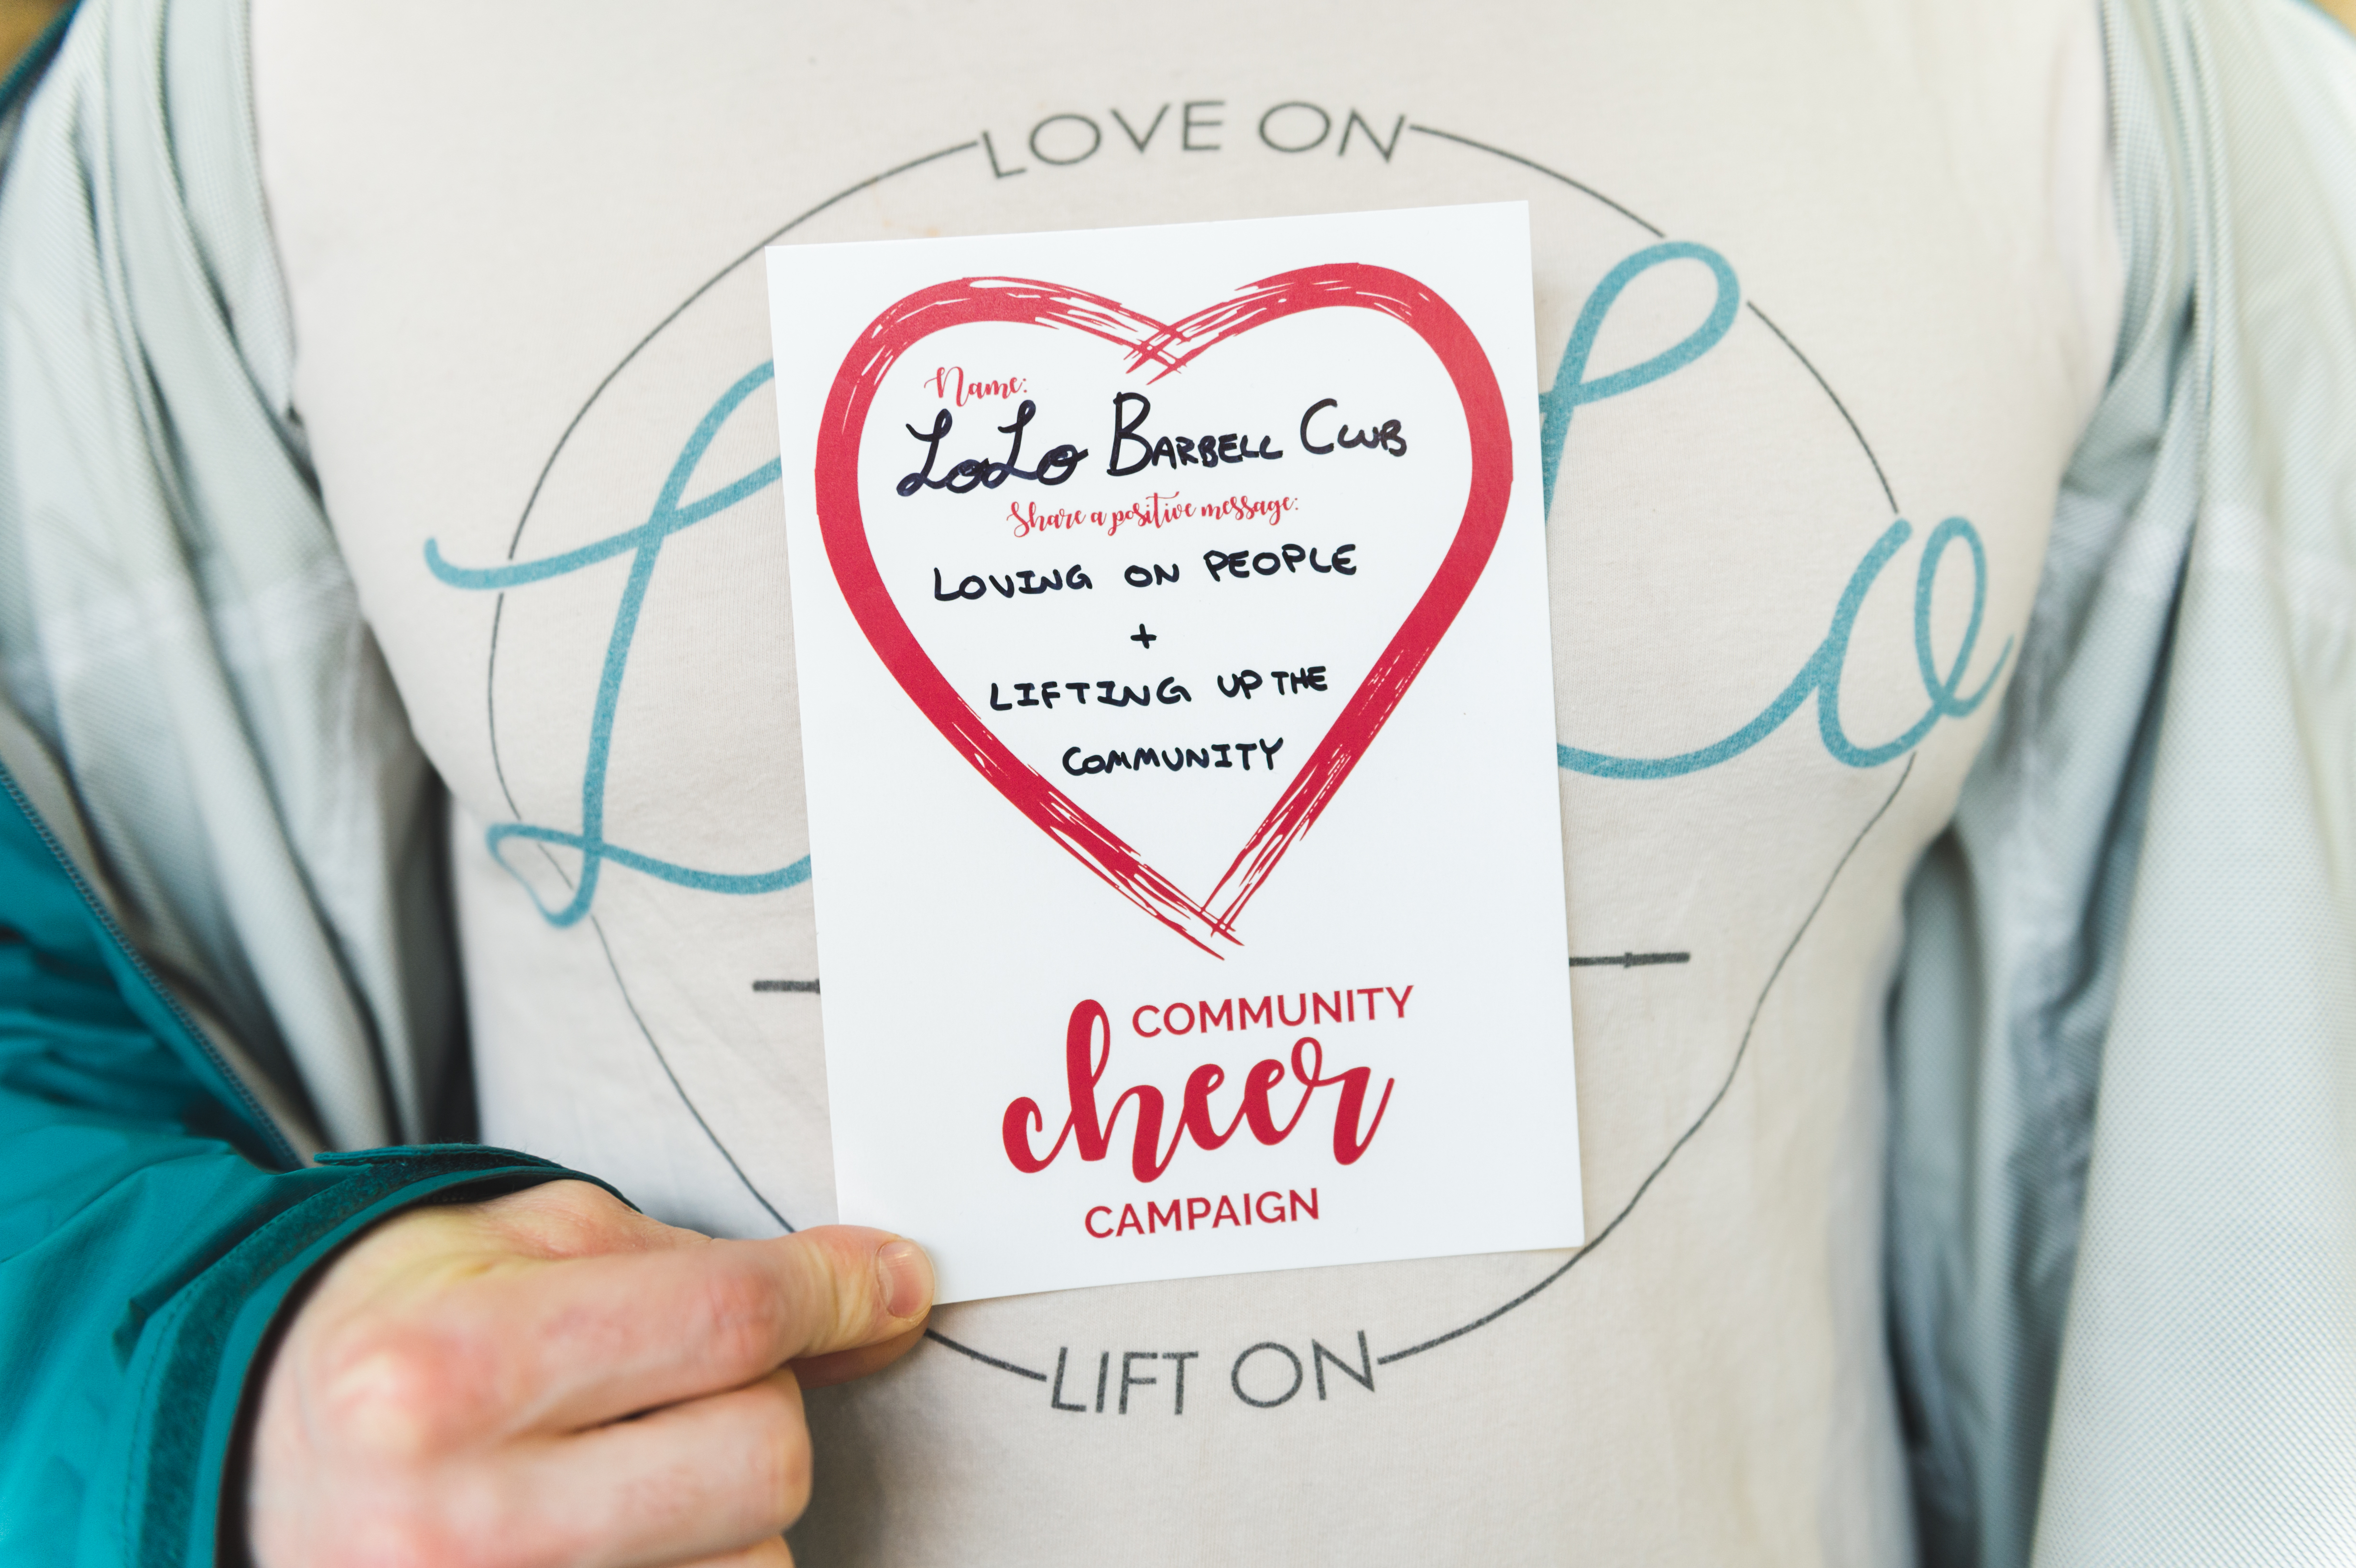 LOVE ON
LoLo
Name:
LoLo BARBELL CLUB
Share a positive message:
LOVING ON PEOPLE
+
LIFTING UP THE
COMMUNITY
COMMUNITY
cheer
CAMPAIGN
LIFT ON